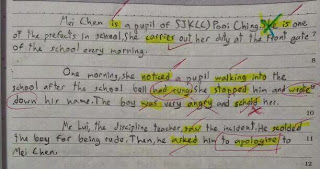 Mei Chen is a pupil of SJK(C) Pooi Ching. She is one
of the prefects in school. She carries out her duty at the front gate
of the school every morning.
8
One morning, she noticed a pupil walking into the
school after the school bell had rung. She stopped him and wrote
down his name. The boy was very angry and
her.
Mr Lui, the discipline teacher saw the incident. He scolded
the boy for being rude. Then, he asked him to apologise to
11
Mei Chen.
12